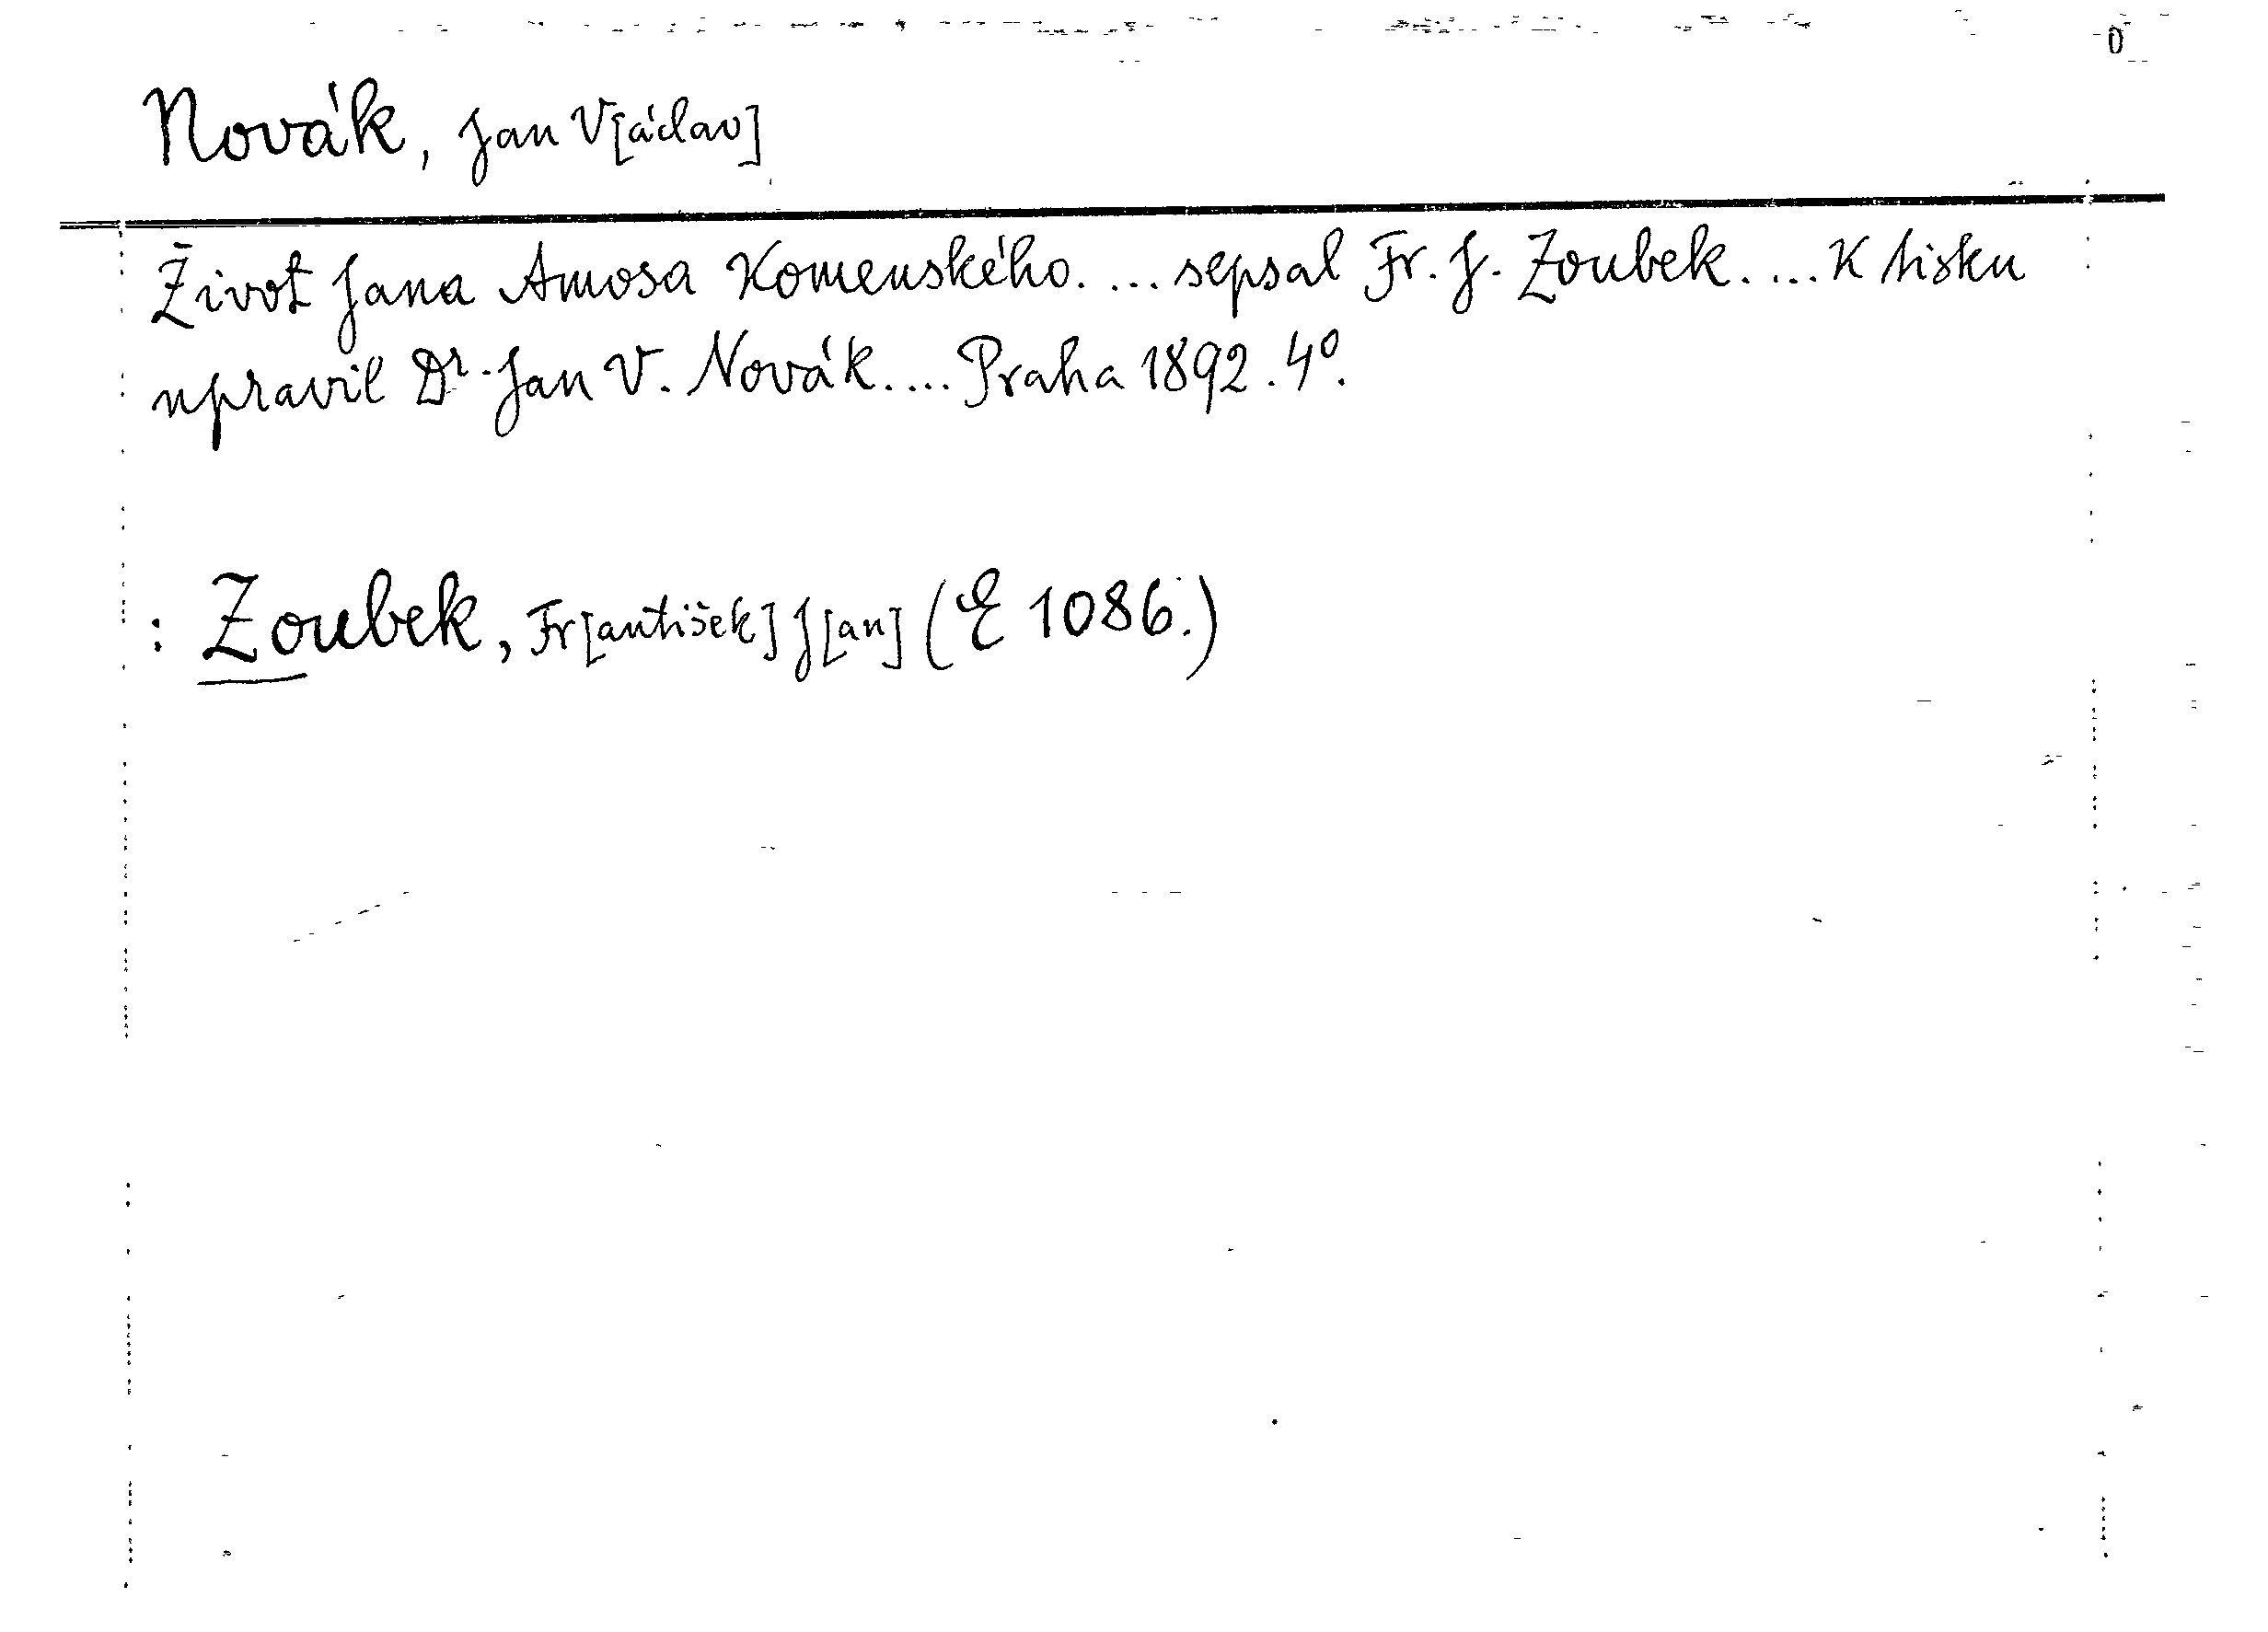 Novák, Jan V[áclav]
Život Jana Amosa Komenského. ... sepsal Fr. J. Zoubek. ... K tisku
upravil Dr. Jan V. Novák. ... Praha 1892. 4º.
: Zoubek, Fr[antišek] J[an] (E 1086.)